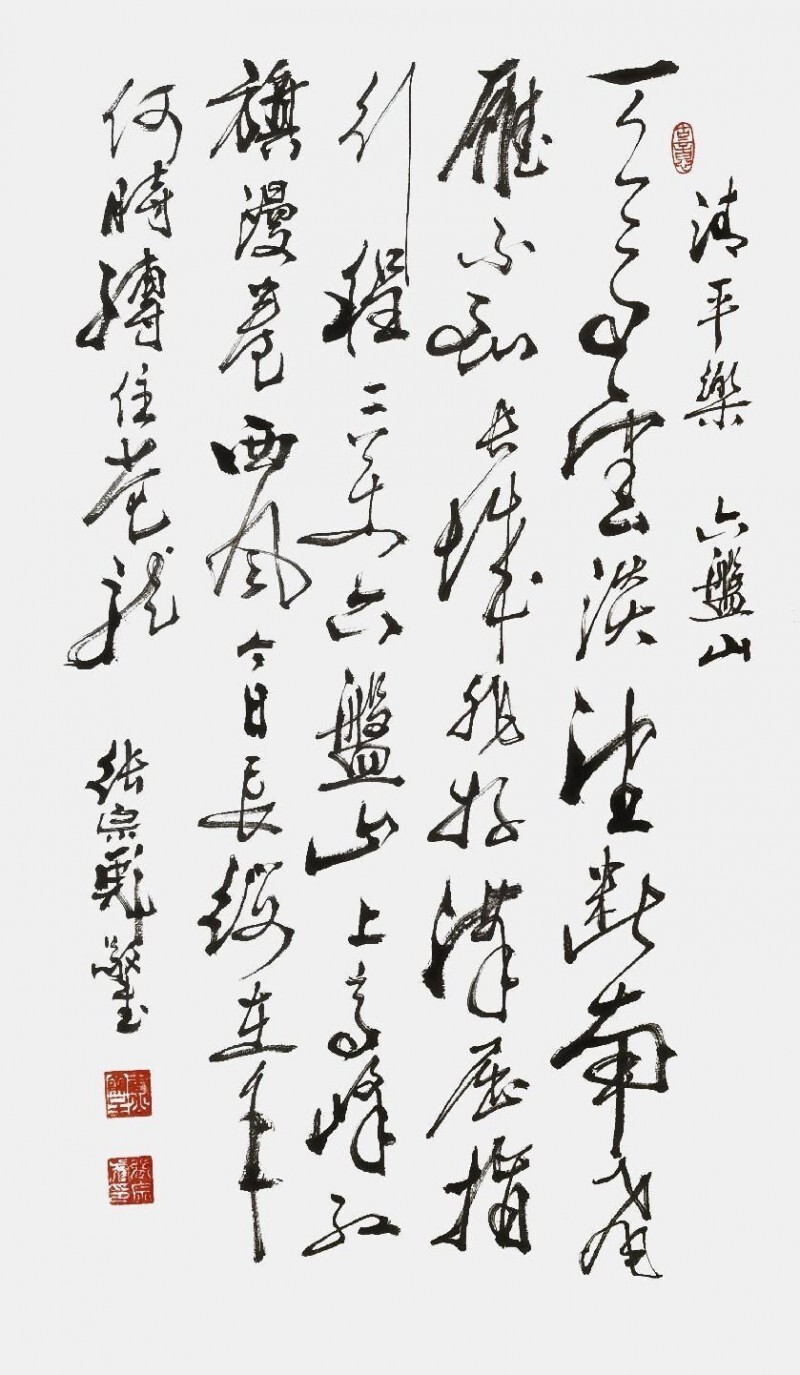 清平樂 六盤山
天高雲淡望斷南飛
雁不到長城非好漢屈指
行程二万六盤山上高峰紅
旗漫卷西风今日長纓在手
何時縛住苍龍
張宗